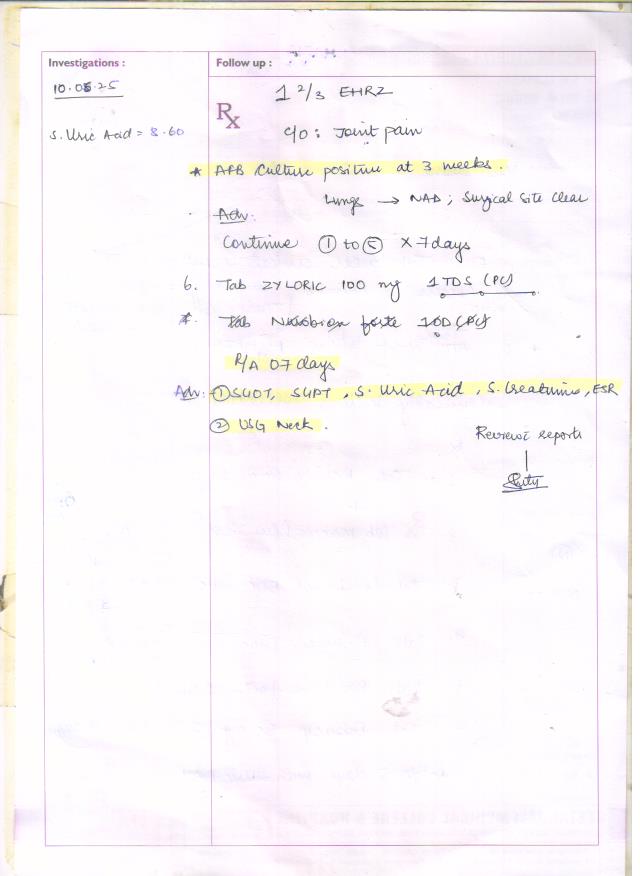 Investigations :
10.05.25
S. Uric Acid = 8.60
Follow up :
Rx
1 2/3 EHRZ
c/o : Joint pain
* AFB Culture positive at 3 weeks.
Lungs → NAD ; Surgical Site Clear
Adv:
Continue ① to ⑤ x 7 days
6. Tab ZYLORIC 100 mg 1 TDS (PC)
7. Tab Neurobion forte 1 OD (PC)
R/A 07 days
Adv: ① SGOT, SGPT, S. Uric Acid, S. Creatinine, ESR
② USG Neck.
Review c̄ reports